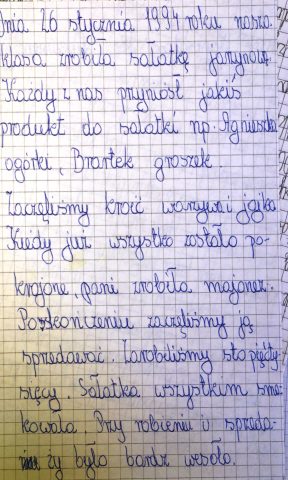 Dnia 26 stycznia 1994 roku nasza
klasa zrobiła sałatkę jarzynową.
Każdy z nas przyniósł jakiś
produkt do sałatki np. Agnieszka
ogórki, Bartek groszek.
Zaczęliśmy kroić warzywa i jajka
Kiedy już wszystko zostało po-
krojone, pani zrobiła majonez.
Poskończeniu zaczęliśmy ją
sprzedawać. Zarobiliśmy sto piędzty-
sięcy. Sałatka wszystkim sma-
kowała. Przy robieniu i sprzeda-
ży było bardz wesoło.